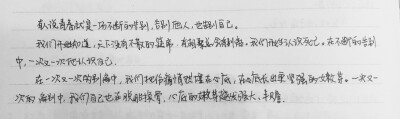 有人说青春就是一场不断的告别，告别他人，也告别自己。
我们开始知道，天下没有不散的筵席，有相聚总会有别离。我们开始认识自己。在不断的告别
中，一次又一次地认识自己。
在一次又一次的别离中，我们把伤痛埋在心底，在心底长出更坚强的
一次又一
次的离别中，我们自己也在脱胎换骨，心底的越发强大、丰盈。